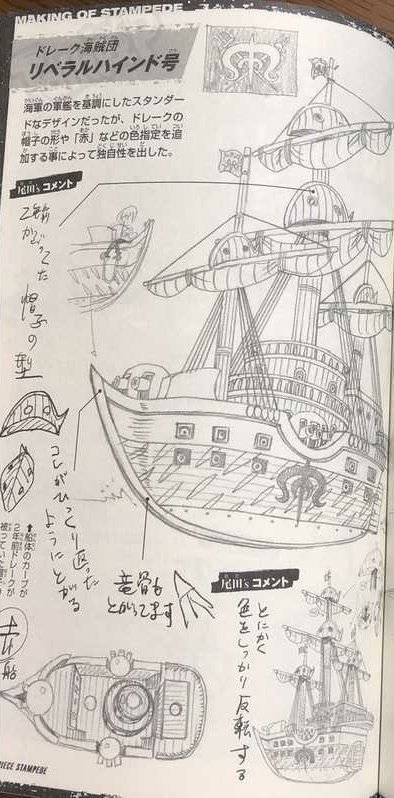 MAKING OF STAMPEDE
ドレーク海賊団
リベラルハインド号
海軍の軍艦を基調にしたスタンダー
ドなデザインだったが、ドレークの
帽子の形や「赤」などの色指定を追
加する事によって独自性を出した。
尾田's コメント
2年前
かぶってた
帽子の
型
コレがひっくり返った
ようにとがる
竜骨も
とがってます
↑船体のカーブが
2年前ドレークが
船
尾田's コメント
とにかく
色をしっかり反転する
PIECE STAMPEDE